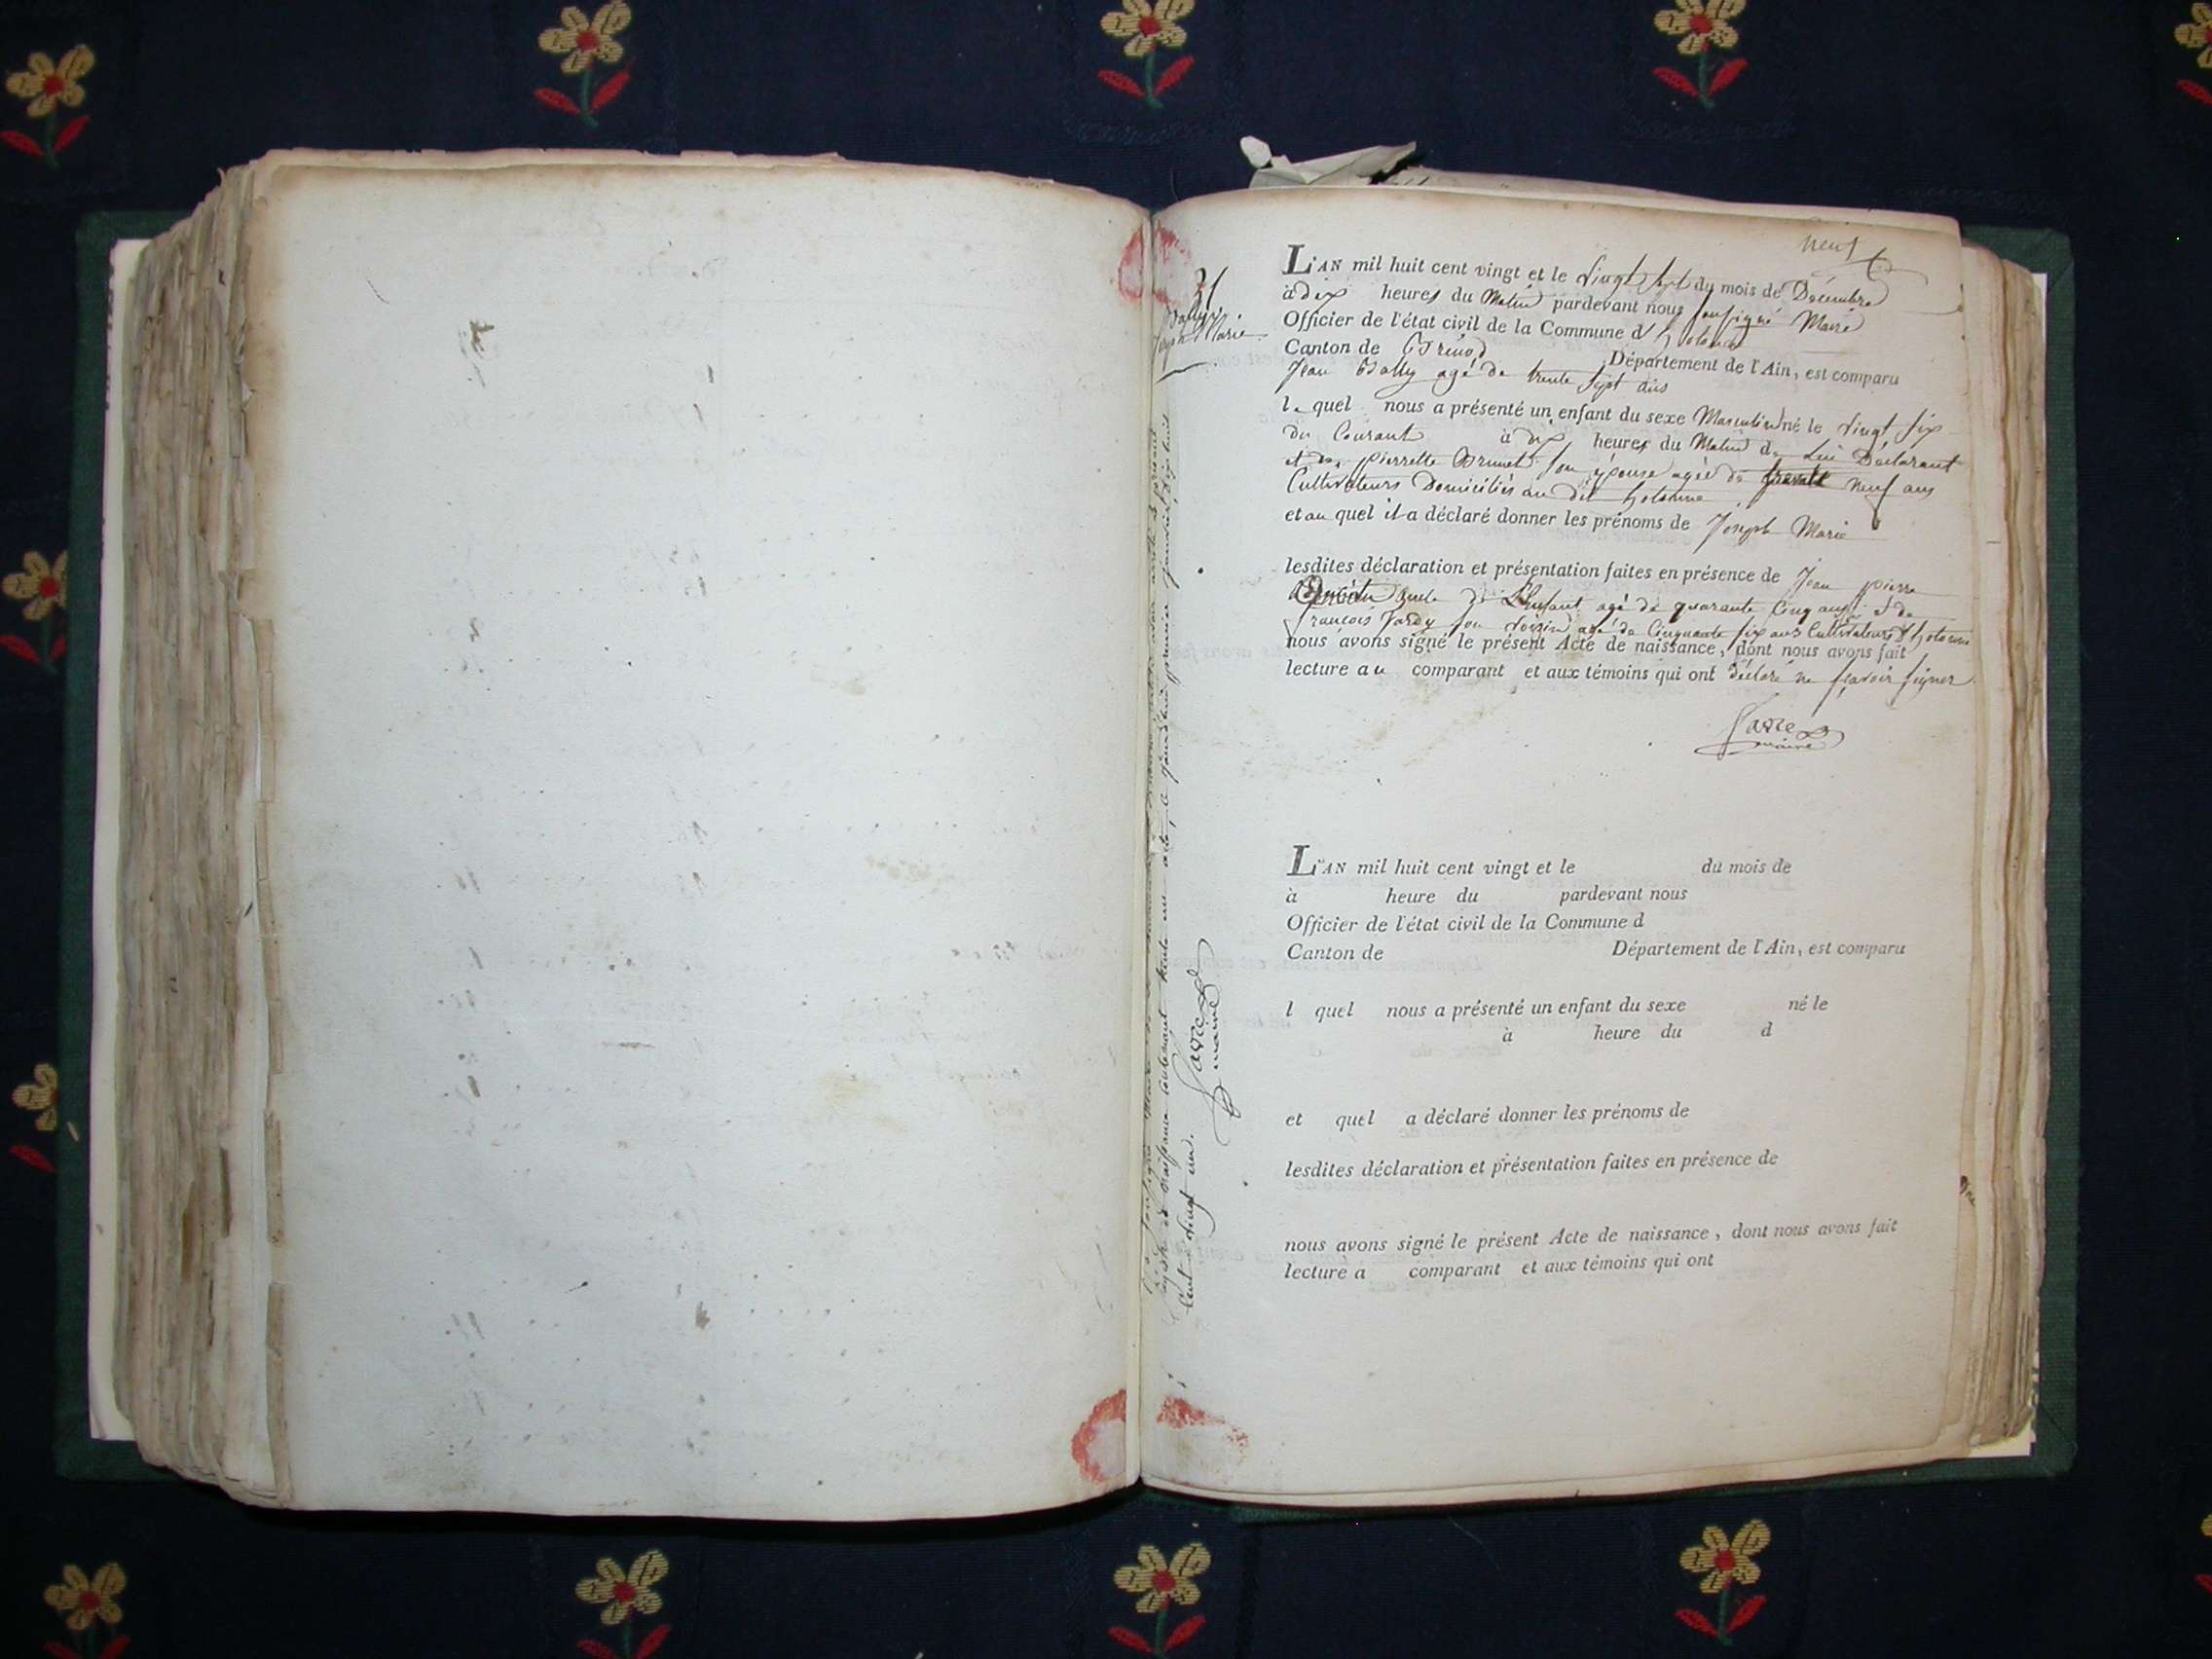 neuf
31
Bally
Joseph Marie
L'AN mil huit cent vingt et le Vingt Sept du mois de Décembre
à dix heures du Matin pardevant nous soussigné Maire
Officier de l'état civil de la Commune d'hotonne
Canton de Brénod Département de l'Ain, est comparu
Jean Bally agé de trente sept ans
lequel nous a présenté un enfant du sexe Masculin né le Vingt six
du Courant à dix heures du Matin de Lui Déclarant
et de pierrette Brunet son épouse agée de neuf ans
Cultivateurs Domiciliés au dit hotonne
et au quel il a déclaré donner les prénoms de Joseph Marie
lesdites déclaration et présentation faites en présence de Jean pierre
oncle de L'Enfant agé de quarante Cinq ans et de
françois Tardy son Voisin agé de Cinquante six ans Cultivateurs d'hotonne
nous avons signé le présent Acte de naissance, dont nous avons fait
lecture au comparant et aux témoins qui ont déclaré ne sçavoir signer
maire
L'AN mil huit cent vingt et le du mois de
à heure du pardevant nous
Officier de l'état civil de la Commune d
Canton de Département de l'Ain, est comparu
l quel nous a présenté un enfant du sexe né le
à heure du d
et quel a déclaré donner les prénoms de
lesdites déclaration et présentation faites en présence de
nous avons signé le présent Acte de naissance, dont nous avons fait
lecture a comparant et aux témoins qui ont
soussigné Maire
de naissance Contenant trente un acte, le premier janvier dix huit
Cent vingt un.
maire